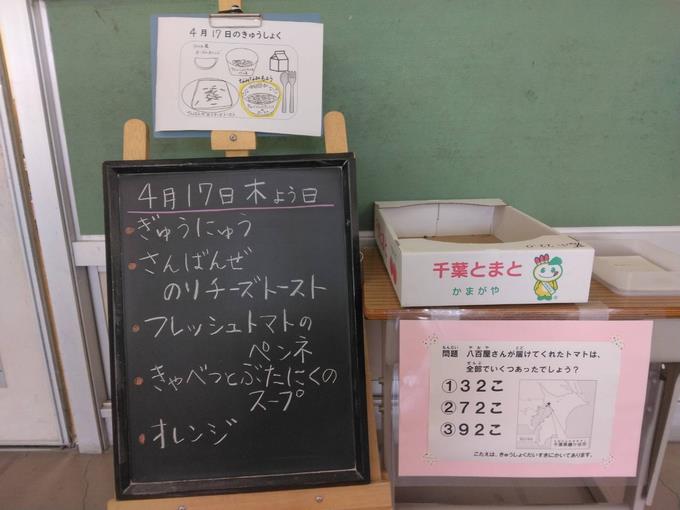 4月17日のきゅうしょく
4月17日木よう日
ぎゅうにゅう
さんばんぜ
のりチーズトースト
フレッシュトマトの
ペンネ
きゃべつとぶたにくの
スープ
オレンジ
千葉とまと
かまがや
問題 八百屋さんが届けてくれたトマトは、
全部でいくつあったでしょう?
①32こ
②72こ
③92こ
こたえは、きゅうしょくだいすきにかいてあります。